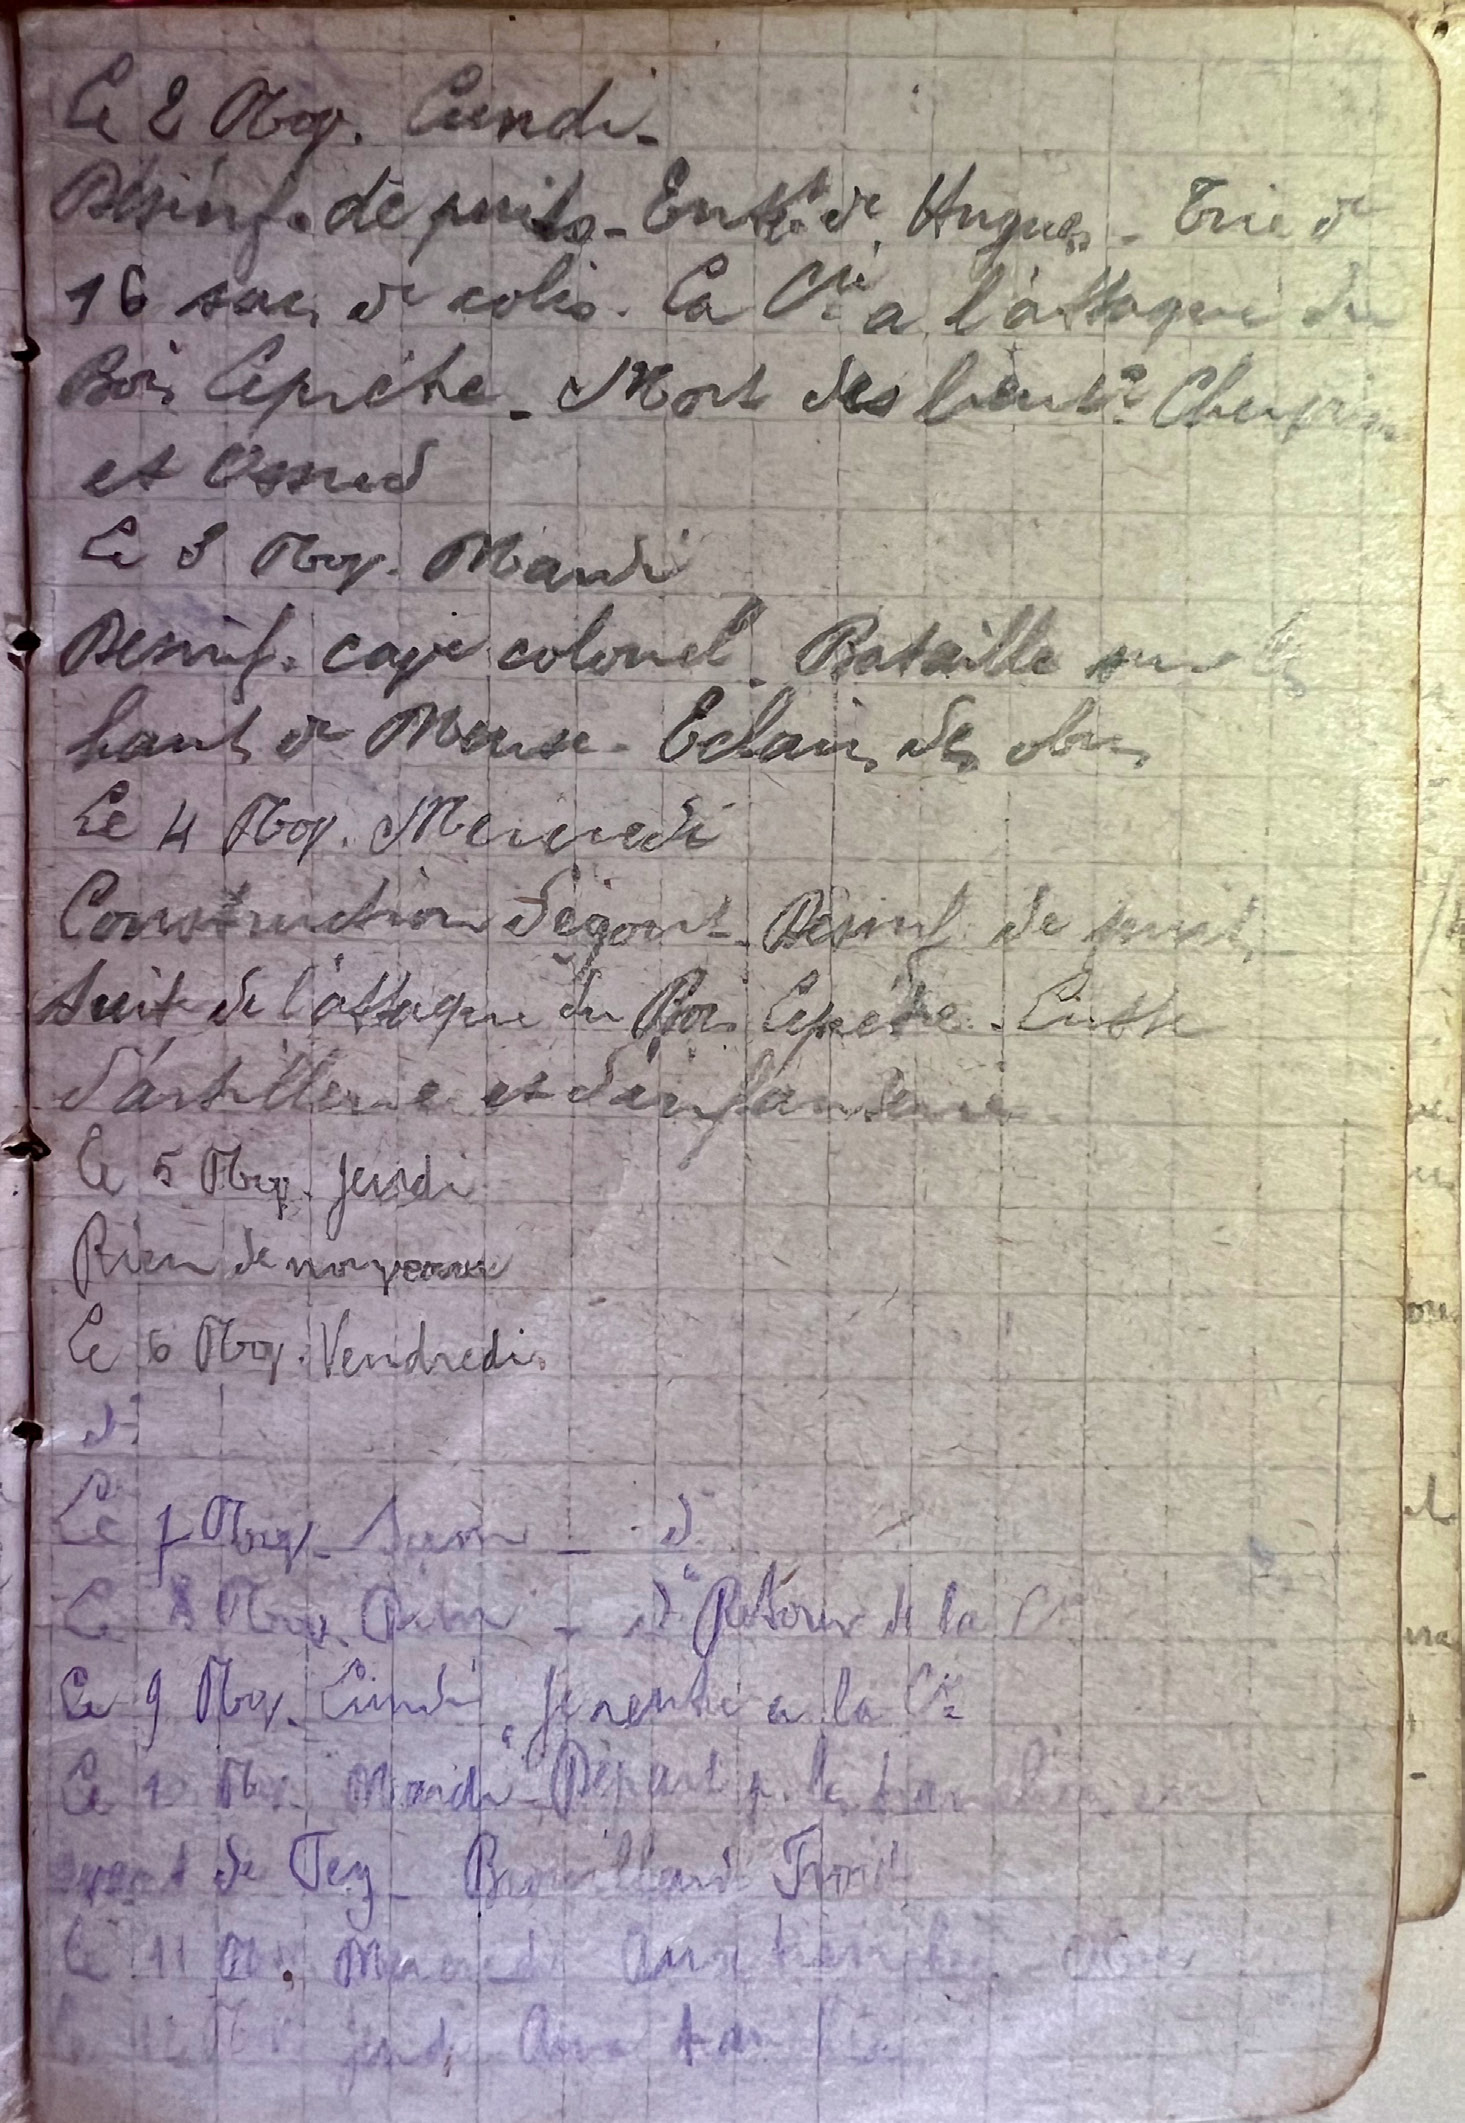 Le 2 Nov. Lundi -
Désinf. de puits - Entt. de Hugues - Trie de
16 sacs de colis. La Cie a l'attaque du
Bois Leprêtre - Mort des lieutts
et
Le 3 Nov. Mardi
Desinf. cave colonel - Bataille sur les
hauts de Meuse - Eclairs des obus
Le 4 Nov. Mercredi
Construction d'égout - Désinf. de puits
suite de l'attaque du Bois Leprêtre - Lutte
d'artillerie et d'infanterie
Le 5 Nov. Jeudi
Rien de nouveau
Le 6 Nov. Vendredi
d°
Le 7 Nov - Sam - d°
Le 8 Nov. Dim - d° Retour de la Cie
Le 9 Nov. Lundi Je rentre a la Cie
Le 10 Nov. Mardi - Départ p. les tranchées en
avant de Tey - Brouillard Froid
Le 11 Nov. Mercredi Aux tranchées -
Le 12 Nov jeudi Aux tranchées